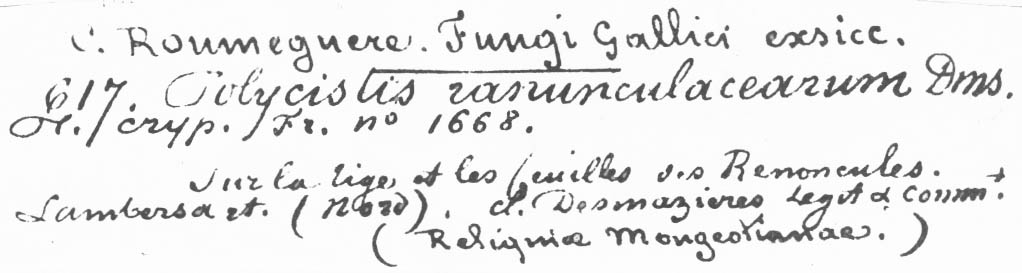 C. Roumeguere. Fungi Gallici exsicc.
617. Polycistis ranunculacearum Dms.
Pl. cryp. Fr. no 1668.
Sur la tige et les feuilles des Renoncules.
Lambersart. (Nord). cl. Desmazieres Legit & Comm.t
(Reliquiæ Mougeotianae.)